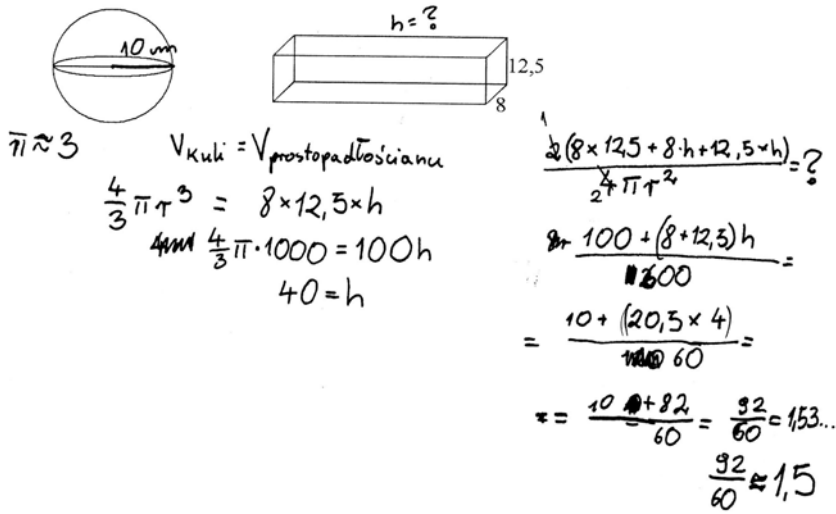 10 cm
h = ?
12,5
8
π ≈ 3
V Kuli = V prostopadłościanu
4/3 π r³ = 8 × 12,5 × h
4/3 π · 1000 = 100h
40 = h
2(8 × 12,5 + 8 · h + 12,5 × h) / 4 π r² = ?
1
2
100 + (8 + 12,5)h / 600 =
= 10 + (20,5 × 4) / 60 =
= 10 + 82 / 60 = 92/60 = 1,53...
92/60 ≈ 1,5